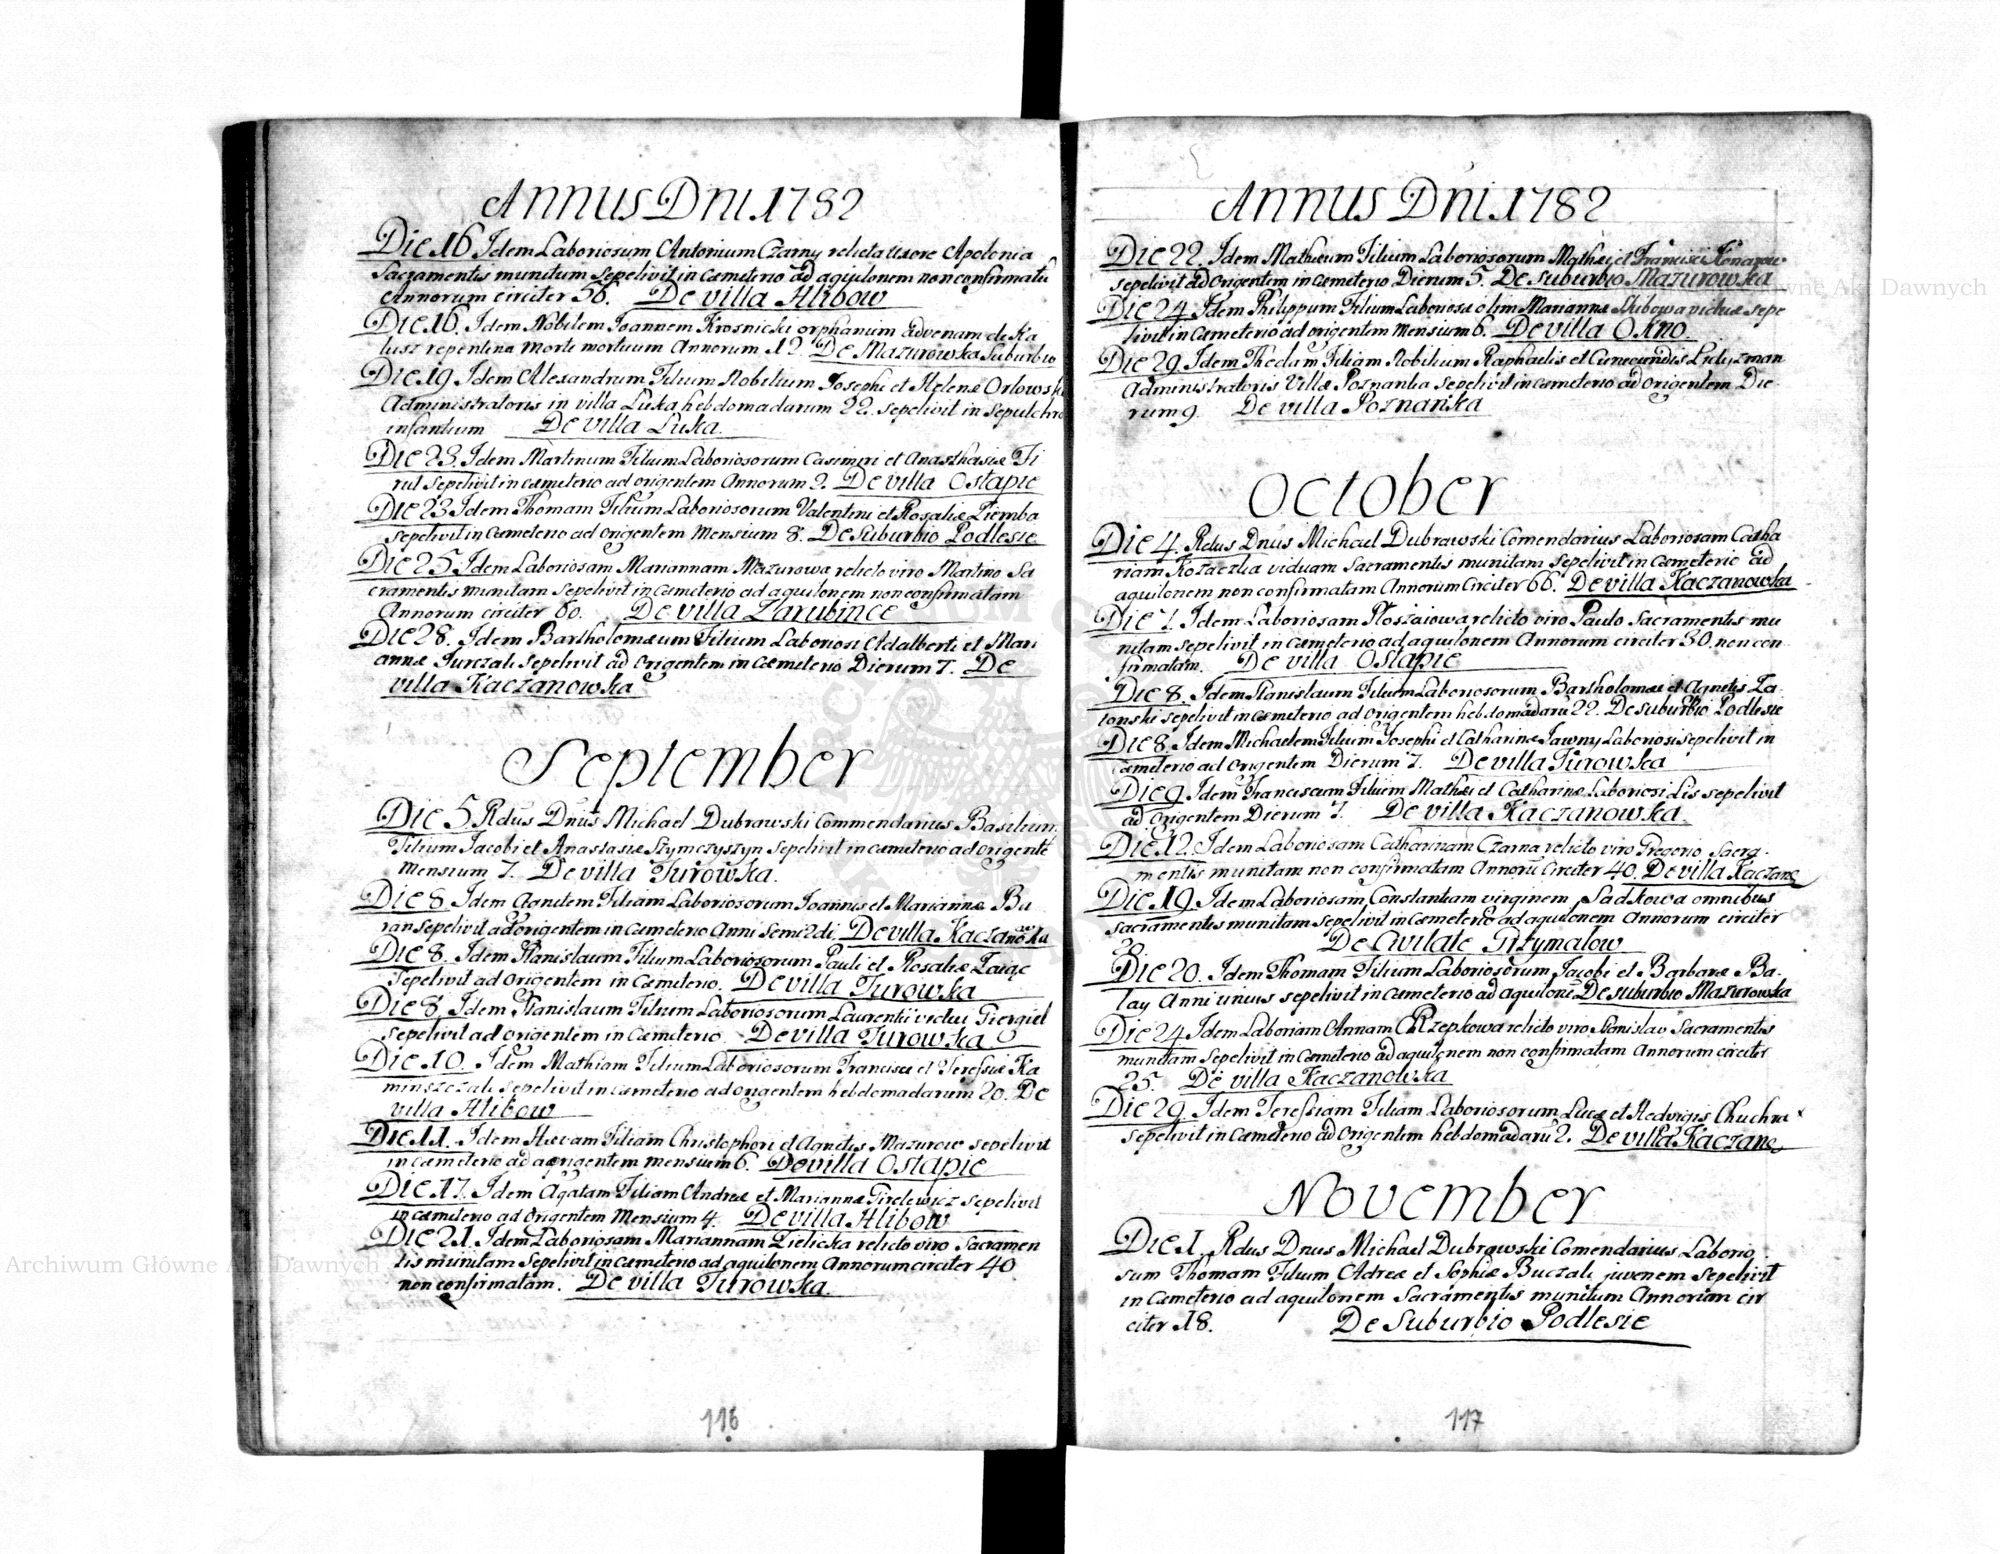 Annus Dni 1782
Die 16. Idem Laboriosum Antonium Czarny relicta uxore Apolonia
Sacramentis munitum sepelivit in cæmeterio ad aquilonem non confirmatū
Annorum circiter 56. De villa Hlibow
Die 16. Idem Nobilem Joannem Krosnicki orphanum advenam de Ka
lusz repentina morte mortuum Annorum 12. De Mazurowka Suburbio
Die 19. Idem Alexandrum Filium Nobilium Josephi et Helenæ Orlowski
Administratoris in villa Luka hebdomadarum 22. sepelivit in sepulchro
infantium De villa Luka.
Die 23. Idem Martinum Filium Laboriosorum Casimiri et Anasthasiæ Fi
rul sepelivit in cæmeterio ad origentem Annorum 2. De villa Ostapie
Die 23 Idem Thomam Filium Laboriosorum Valentini et Rosaliæ Ziemba
sepelivit in Cæmeterio ad origentem Mensium 8. De Suburbio Podlesie
Die 25. Idem Laboriosam Mariannam Mazurowa relicto viro Martino Sa
cramentis munitam sepelivit in cæmeterio ad aquilonem non confirmatam
Annorum circiter 60. De villa Zarubince
Die 28. Idem Bartholomæum Filium Laboriosi Adalberti et Mari
annæ Jurczak sepelivit ad origentem in cæmeterio Dierum 7. De
villa Kaczanowka
September
Die 5 Rdus Dnus Michael Dubrawski Commendarius Basilium
Filium Jacobi et Anastasiæ Szymczyszyn sepelivit in cæmeterio ad origentē
Mensium 7. De villa Turowka.
Die 8. Idem Agnetem Filiam Laboriosorum Joannis et Mariannæ Bu
ran sepelivit ad origentem in Cæmeterio Anni Semi 2di. De villa Kaczanowka
Die 8. Idem Stanislaum Filium Laboriosorum Pauli et Rosaliæ Zaiąc
Sepelivit ad origentem in Cæmeterio. De villa Turowka
Die 8. Idem Stanislaum Filium Laboriosorum Laurentii vidui Giergiel
sepelivit ad origentem in Cæmeterio. De villa Turowka
Die 10. Idem Mathiam Filium Laboriosorum Francisci et Teressiæ Ka
minszczak sepelivit in cæmeterio ad origentem hebdomadarum 20. De
villa Hlibow
Die 11. Idem Hævam Filiam Christophori et Agnetis Mazurow sepelivit
in cæmeterio ad aorigentem mensium 6. De villa Ostapie
Die 17. Idem Agatam Filiam Andreæ et Mariannæ Tirelewicz sepelivit
in cæmeterio ad Origentem Mensium 4. De villa Hlibow
Die 21. Idem Laboriosam Mariannam Zielicka relicto viro Sacramen
tis munitam sepelivit in Cæmeterio ad aquilonem Annorum circiter 40
non confirmatam. De villa Turowka.
116
Annus Dni 1782
Die 22. Idem Matheum Filium Laboriosorum Mathæi et Francisci
sepelivit ad Origentem in cæmeterio Dierum 5. De suburbio Mazurowka
Die 24. Idem Philippum Filium Laboriosæ olim Mariannæ Skibowa viduæ sepe
livit in Cæmeterio ad origentem Mensium 6. De villa Okno.
Die 29. Idem Theclam Filiam Nobilium Raphaelis et Cunegundis
Administratoris Villæ Poznanka sepelivit in cæmeterio ad origentem Die
rum 9. De villa Poznańka
October
Die 4. Rdus Dnus Michael Dubrawski Comendarius Laboriosam Catha
rinam Kozaczka viduam Sacramentis munitam sepelivit in Cæmeterio ad
aquilonem non confirmatam Annorum Circiter 66. De villa Kaczanowka
Die 7. Idem Laboriosam Płoszaiowa relicto viro Paulo Sacramentis mu
nitam sepelivit in cæmeterio ad aquilonem Annorum circiter 30. non con
firmatam. De villa Ostapie
Die 8. Idem Stanislaum Filium Laboriosorum Bartholomæi et Agnetis Za
ionski sepelivit in cæmeterio ad origentem hebdomadarū 22. De suburbio Podlesie
Die 8. Idem Michaelem Filium Josephi et Catharinæ Jawny Laboriosi sepelivit in
Cæmeterio ad Origentem Dierum 7. De villa Turowka
Die 9. Idem Franciscum Filium Mathæi et Catharinæ Laboriosi Lis sepelivit
ad origentem Dierum 7. De villa Kaczanowka.
Die 12. Idem Laboriosam Catharinam Czarna relicto viro Gregorio Sacra-
mentis munitam non confirmatam Annorū Circiter 40. De villa Kaczano
Die 19. Idem Laboriosam Constantiam virginem Sadkowa omnibus
sacramentis munitam sepelivit in Cæmeterio ad aquilonem Annorum circiter
30. De Civitate Grzymalow
Die 20. Idem Thomam Filium Laboriosorum Jacobi et Barbaræ Ba-
lay Anni unius sepelivit in Cæmeterio ad aquilonē De suburbio Mazurowka
Die 24 Idem Laboriam Annam Rzepkowa relicto viro Stanislao Sacramentis
munitam sepelivit in Cæmeterio ad aquilonem non confirmatam Annorum circiter
25. De villa Kaczanowka
Die 29. Idem Teressiam Filiam Laboriosorum Lucæ et Hedvigis Chuchra
sepelivit in Cæmeterio ad Origentem hebdomadarū 2. De villa Kaczano
November
Die 1. Rdus Dnus Michael Dubrawski Comendarius Laborio
sum Thomam Filium Adreæ et Sophiæ Buczak juvenem sepelivit
in Cæmeterio ad aquilonem Sacramentis munitum Annorum cir
citer 18. De Suburbio Podlesie
117
Archiwum Główne Akt Dawnych
Archiwum Główne Akt Dawnych